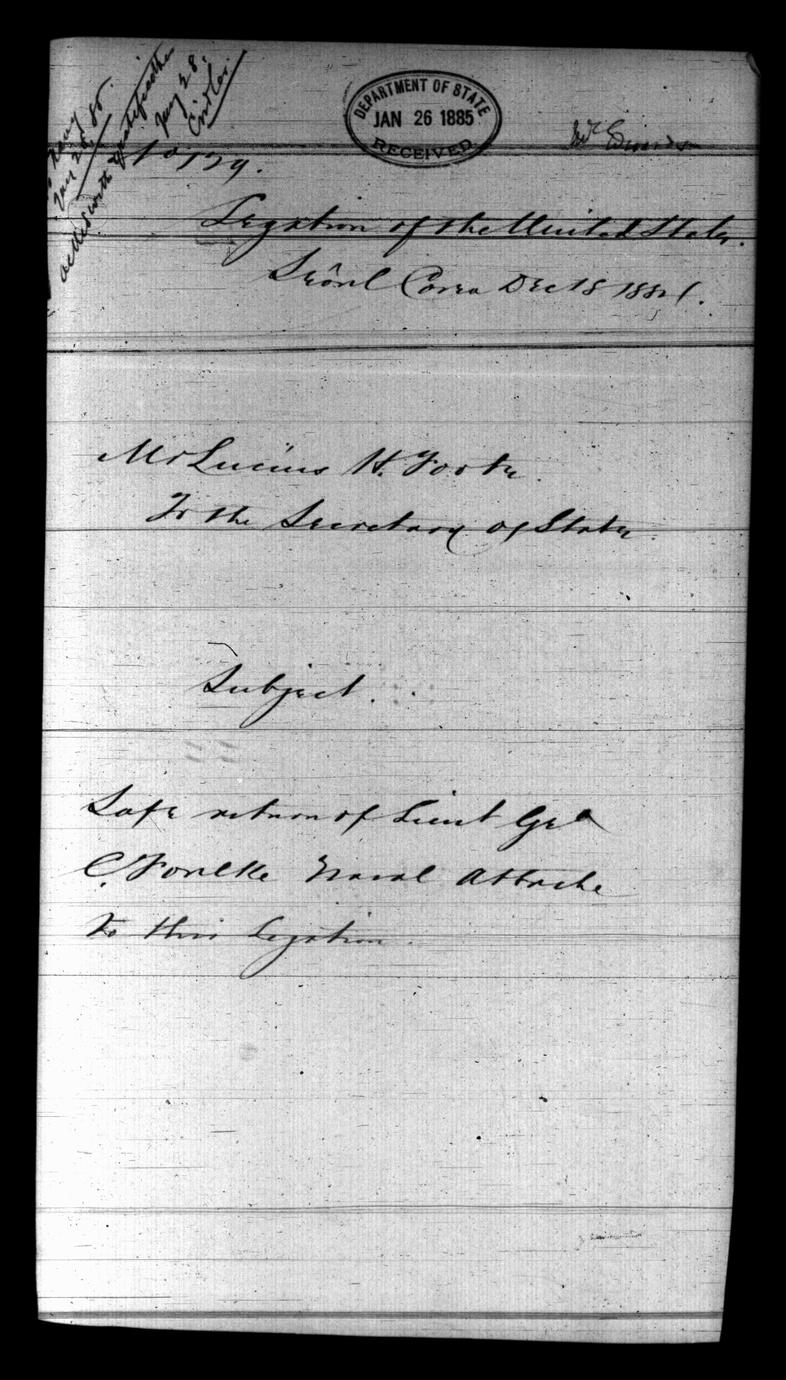 Navy
Jan 28, 85.
ackd with gratification
Jany 28,
DEPARTMENT OF STATE
JAN 26 1885
RECEIVED
No 129.
Legation of the United States.
Seôul Corea Dec 18 1884.
Mr Lucius H. Foote
To the Secretary of State
Subject.
Safe return of Lieut Geo
C. Foulke Naval Attache
to this Legation.